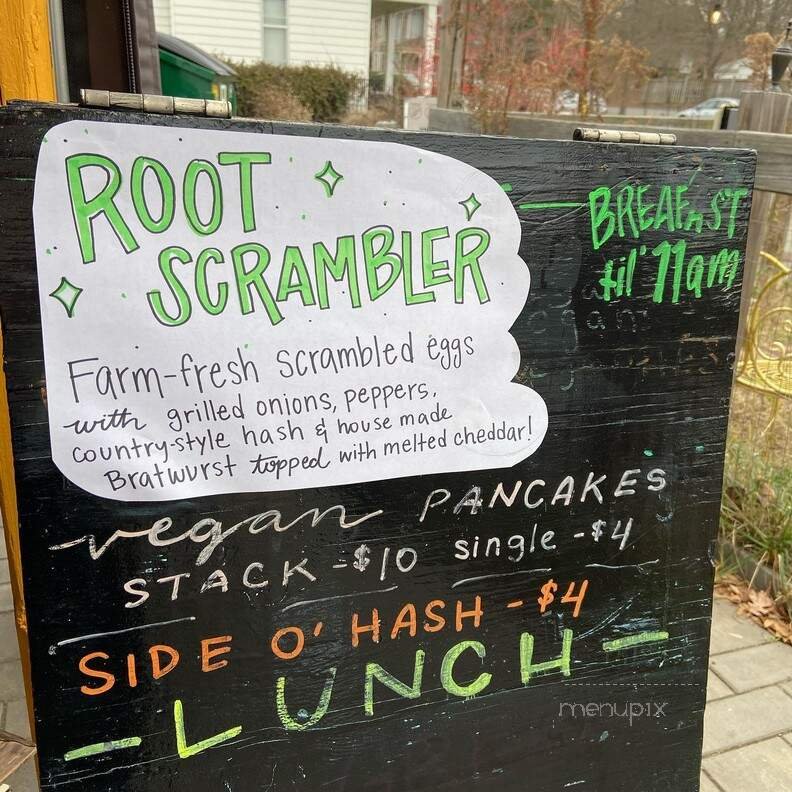 ROOT
SCRAMBLER
Farm-fresh scrambled eggs
with grilled onions, peppers,
country-style hash & house made
Bratwurst topped with melted cheddar!
til' 11am
vegan PANCAKES
STACK - $10 single - $4
SIDE O' HASH - $4
- LUNCH -
menupix